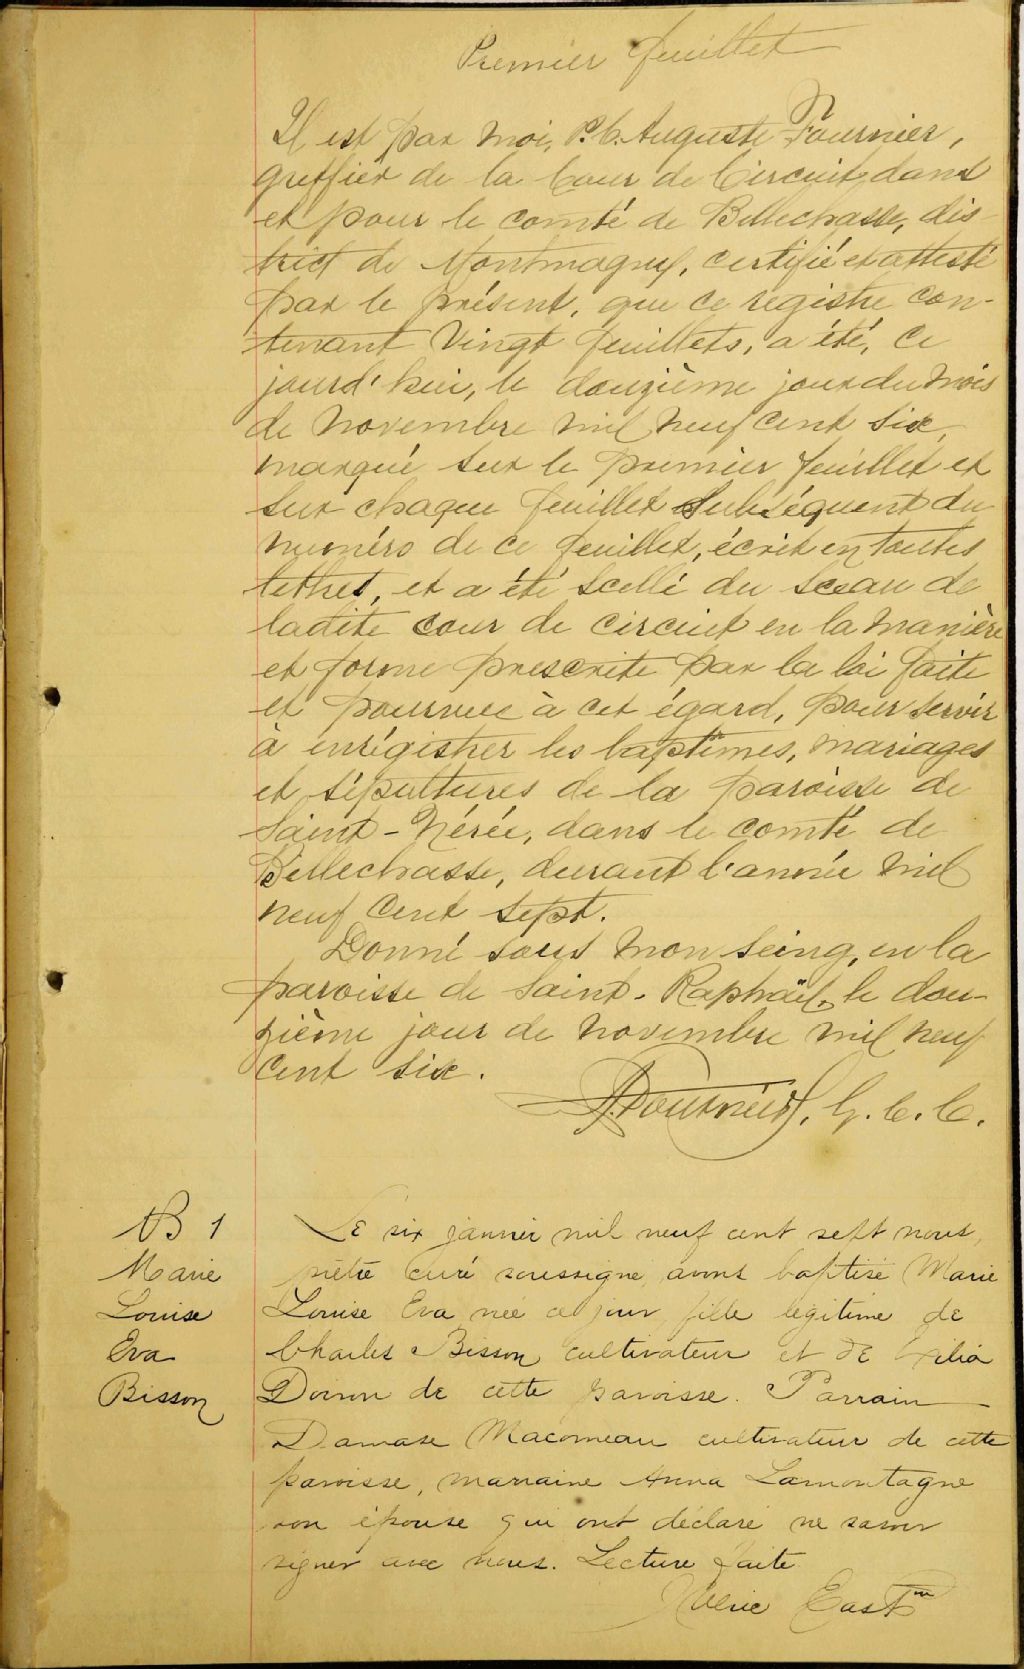 Premier feuillet
Il est par moi, P. C. Auguste Fournier,
greffier de la Cour de Circuit, dans
et pour le comté de Bellechasse, dis-
trict de Montmagny, certifié et attesté
par le présent, que ce registre con-
tenant Vingt feuillets, a été, ce
jourd'hui, le douzième jour du mois
de novembre mil neuf cent six,
marqué sur le premier feuillet et
sur chaque feuillet subséquent du
numéro de ce feuillet, écrit en toutes
lettres, et a été scellé du sceau de
ladite cour de circuit en la manière
et forme prescrite par la loi faite
et pourvue à cet égard, pour servir
à enrégistrer les baptêmes, mariages
et sépultures de la paroisse de
Saint-Nérée, dans le comté de
Bellechasse, durant l'année mil
neuf cent sept.
Donné sous mon seing, en la
paroisse de Saint-Raphaël, le dou-
zième jour de novembre mil neuf
cent six.
A. Fournier, G. C. C.
B 1
Marie
Louise
Eva
Bisson
Le six janvier mil neuf cent sept nous,
prêtre curé soussigné, avons baptisé Marie
Louise Eva née ce jour, fille légitime de
Charles Bisson cultivateur et de
Doiron de cette paroisse. Parrain
Damase Macomeau cultivateur de cette
paroisse, marraine Anna Lamontagne
son épouse qui ont déclaré ne savoir
signer avec nous. Lecture faite
East ptre